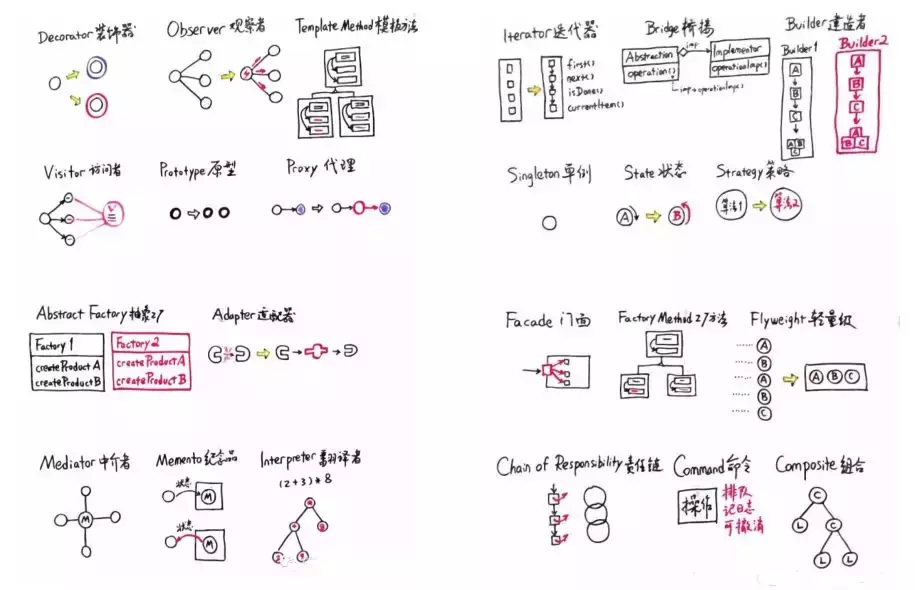 Decorator 装饰器
Observer 观察者
Template Method 模板方法
Visitor 访问者
Prototype 原型
Proxy 代理
Abstract Factory 抽象工厂
Factory 1
createProductA
createProductB
Factory 2
createProductA
createProductB
Adapter 适配器
Mediator 中介者
M
Memento 纪念品
状态
M
状态
M
Interpreter 翻译者
(2+3)*8
Iterator 迭代器
first()
next()
isDone()
currentItem()
Bridge 桥接
Abstraction
operation()
imp
Implementor
operationImp()
imp→operationImp()
Builder 建造者
Builder1
A
B
C
A B
C
Builder2
A
B
C
A
B C
Singleton 单例
State 状态
A
B
Strategy 策略
算法1
算法2
Facade 门面
Factory Method 工厂方法
Flyweight 轻量级
A
B
A
B
C
A B C
Chain of Responsibility 责任链
Command 命令
操作
排队
记日志
可撤消
Composite 组合
C
L C
L L